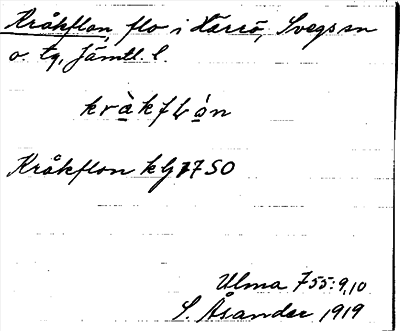 Kråkflon, flo i Härrö, Svegs sn
o. tg, Jämtl. l.
kråkflón
Kråkflon kbl 17 SO
Ulma 755:9,10
S. Åsander 1919